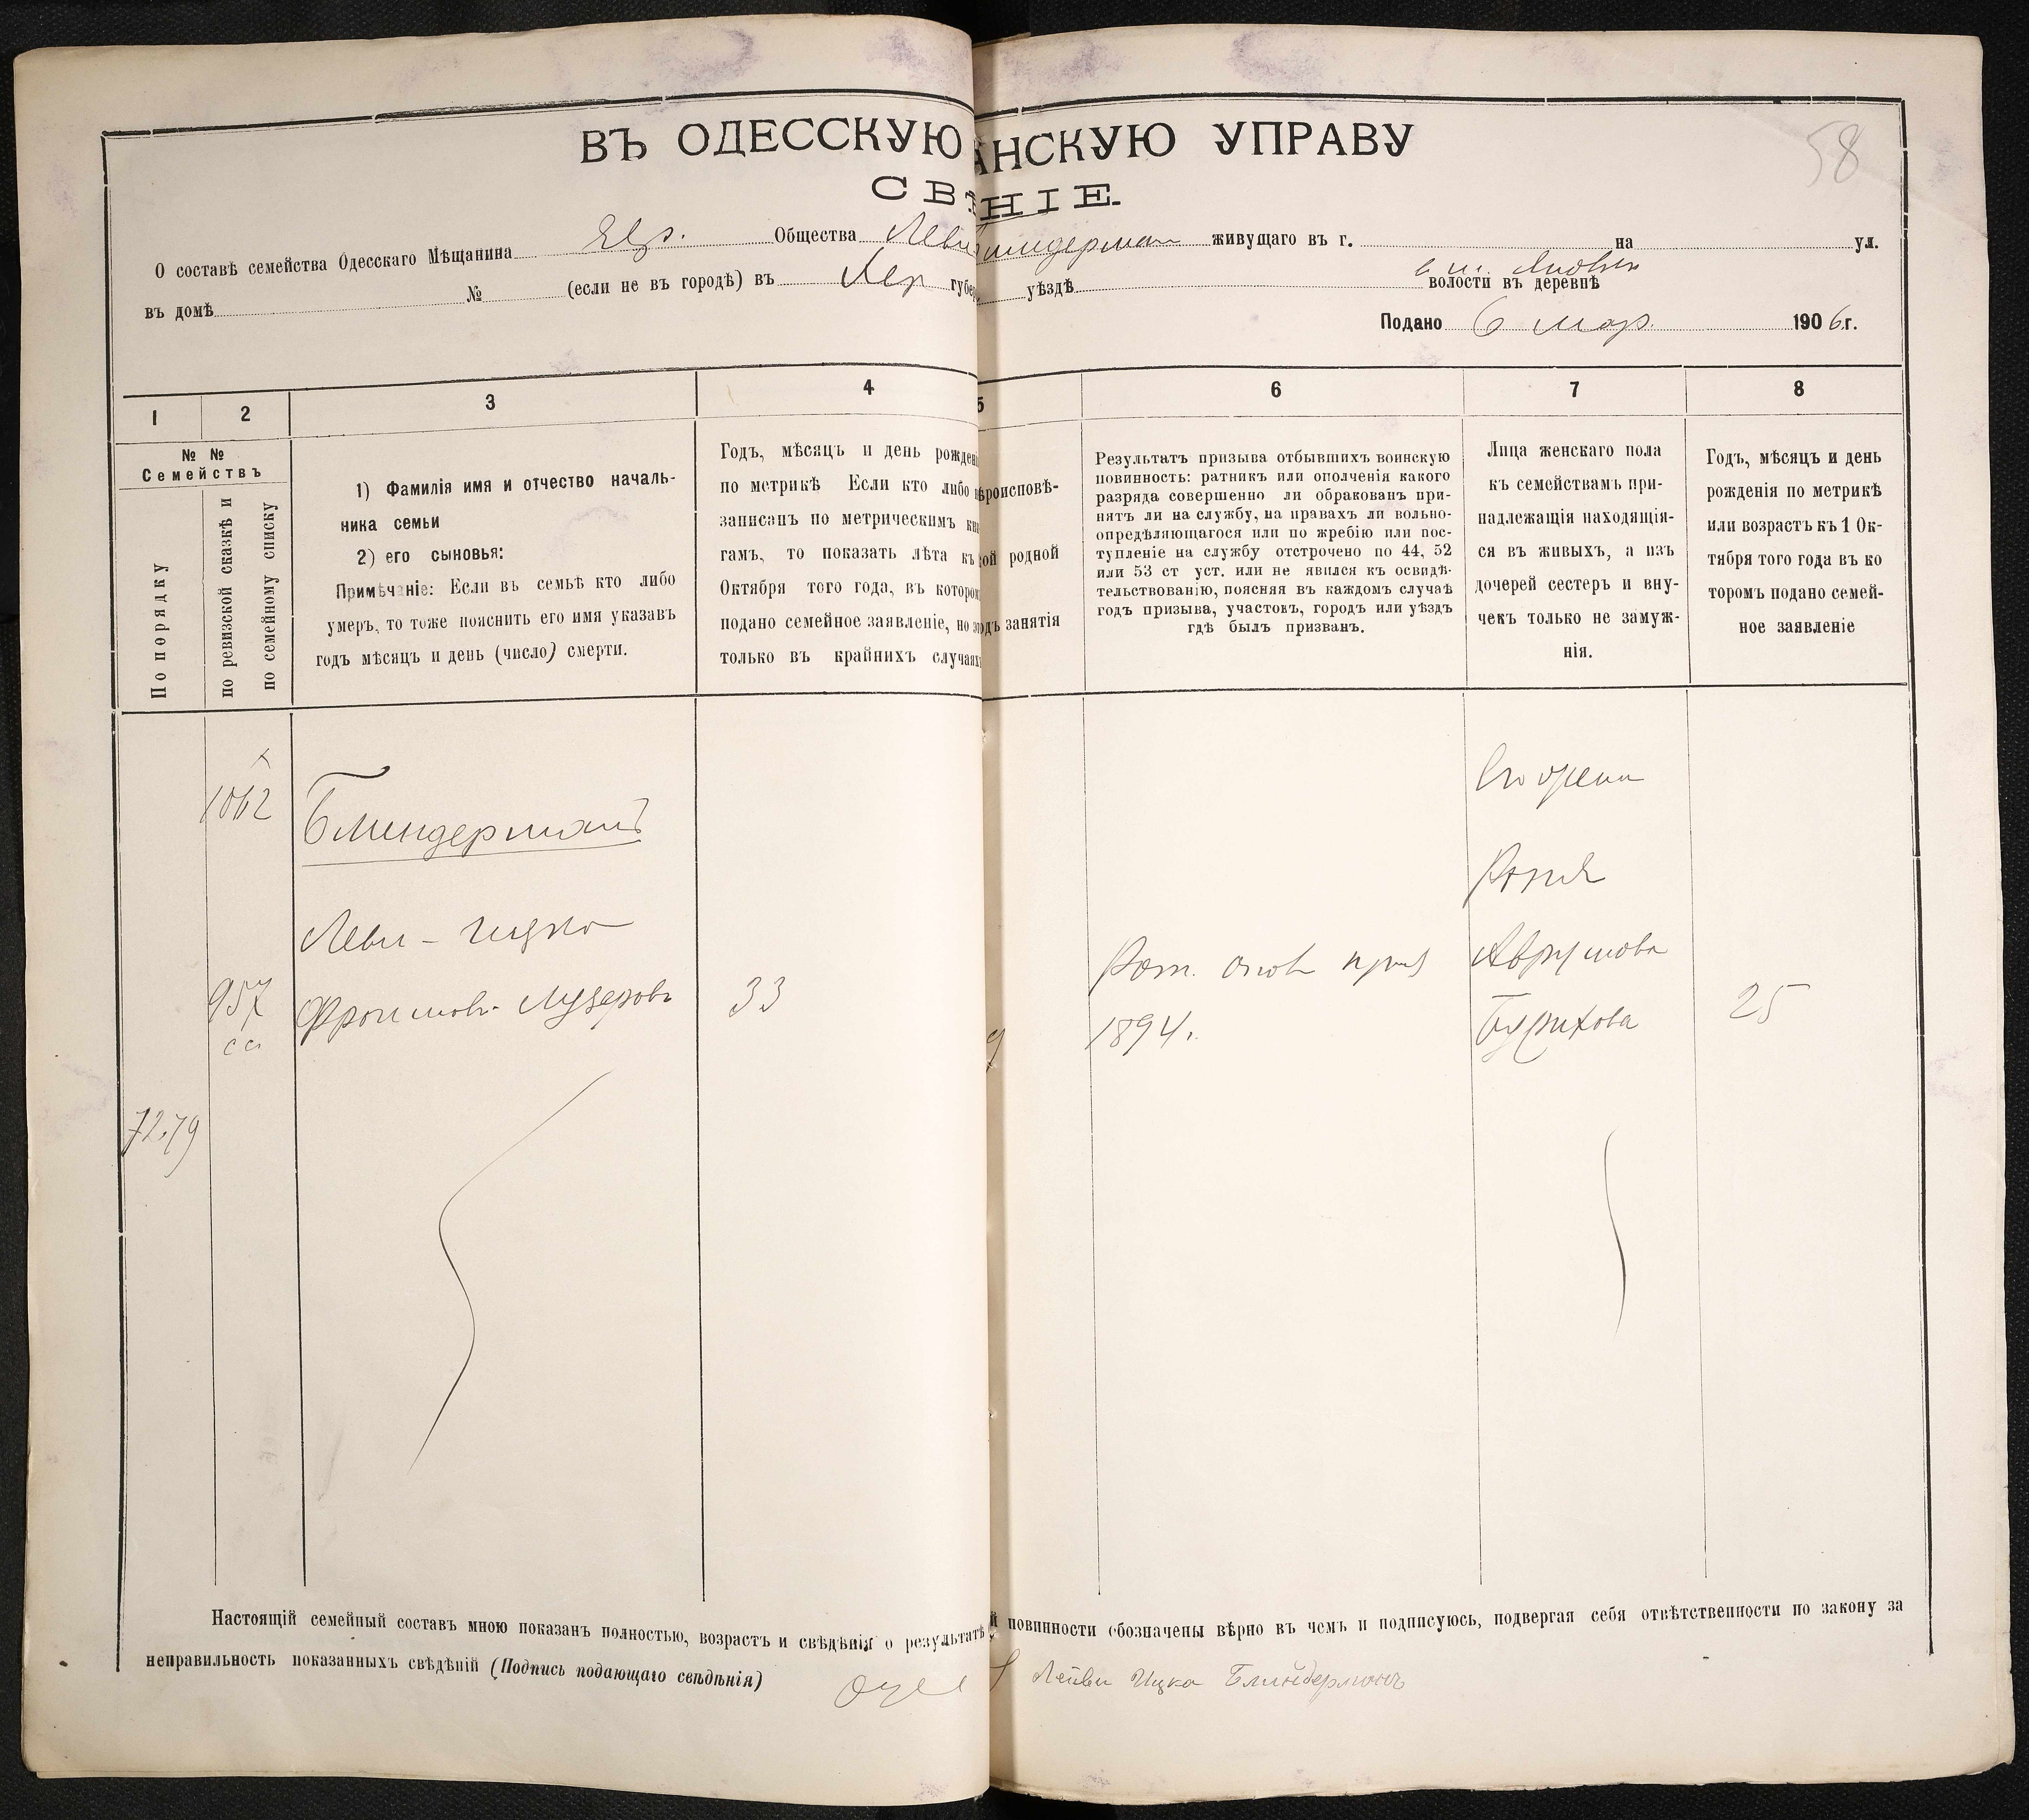 ВЪ ОДЕССКУЮ АНСКУЮ УПРАВУ
58
СВѢ НІЕ.
О составѣ семейства Одесскаго Мѣщанина Евр. Общества Леви Блиндерман живущаго въ г. на ул.
въ домѣ № (если не въ городѣ) въ Хер губе уѣздѣ волости въ деревнѣ
Подано 6 мар. 1906 г.
1 2 3 4 5 6 7 8
№ №
Семействъ
По порядку
по ревизской сказкѣ и
по семейному списку
1) Фамилія имя и отчество началь-
ника семьи
2) его сыновья:
Примѣчаніе: Если въ семьѣ кто либо
умеръ, то тоже пояснить его имя указавъ
годъ мѣсяцъ и день (число) смерти.
Годъ, мѣсяцъ и день рожден
по метрикѣ Если кто либо н
записанъ по метрическимъ кни
гамъ, то показать лѣта къ
Октября того года, въ которо
подано семейное заявленіе, но э
только въ крайнихъ случаях
ѣроисповѣ-
ой родной
одъ занятія
Результатъ призыва отбывшихъ воинскую
повинность: ратникъ или ополченія какого
разряда совершенно ли обракованъ при-
нятъ ли на службу, на правахъ ли вольно-
опредѣляющагося или по жребію или пос-
тупленіе на службу отстрочено по 44, 52
или 53 ст уст. или не явился къ освидѣ-
тельствованію, поясняя въ каждомъ случаѣ
годъ призыва, участокъ, городъ или уѣздъ
гдѣ былъ призванъ.
Лица женскаго пола
къ семействамъ при-
надлежащія находящія-
ся въ живыхъ, а изъ
дочерей сестеръ и вну-
чекъ только не замуж-
нія.
Годъ, мѣсяцъ и день
рожденія по метрикѣ
или возрастъ къ 1 Ок-
тября того года въ ко
торомъ подано семей-
ное заявленіе
1062
Блиндерманъ
Леви - Ицко
957
Фроимовъ-Лузеровъ
33
Рат. опол
1894 г.
Его жена
Аврумова
25
72.79
Настоящій семейный составъ мною показанъ полностью, возрастъ и свѣдѣнія о результатѣ й повинности обозначены вѣрно въ чемъ и подписуюсь, подвергая себя отвѣтственности по закону за
неправильность показанныхъ свѣдѣній (Подпись подающаго свѣдѣнія) Лейви Ицко Блиндерманъ